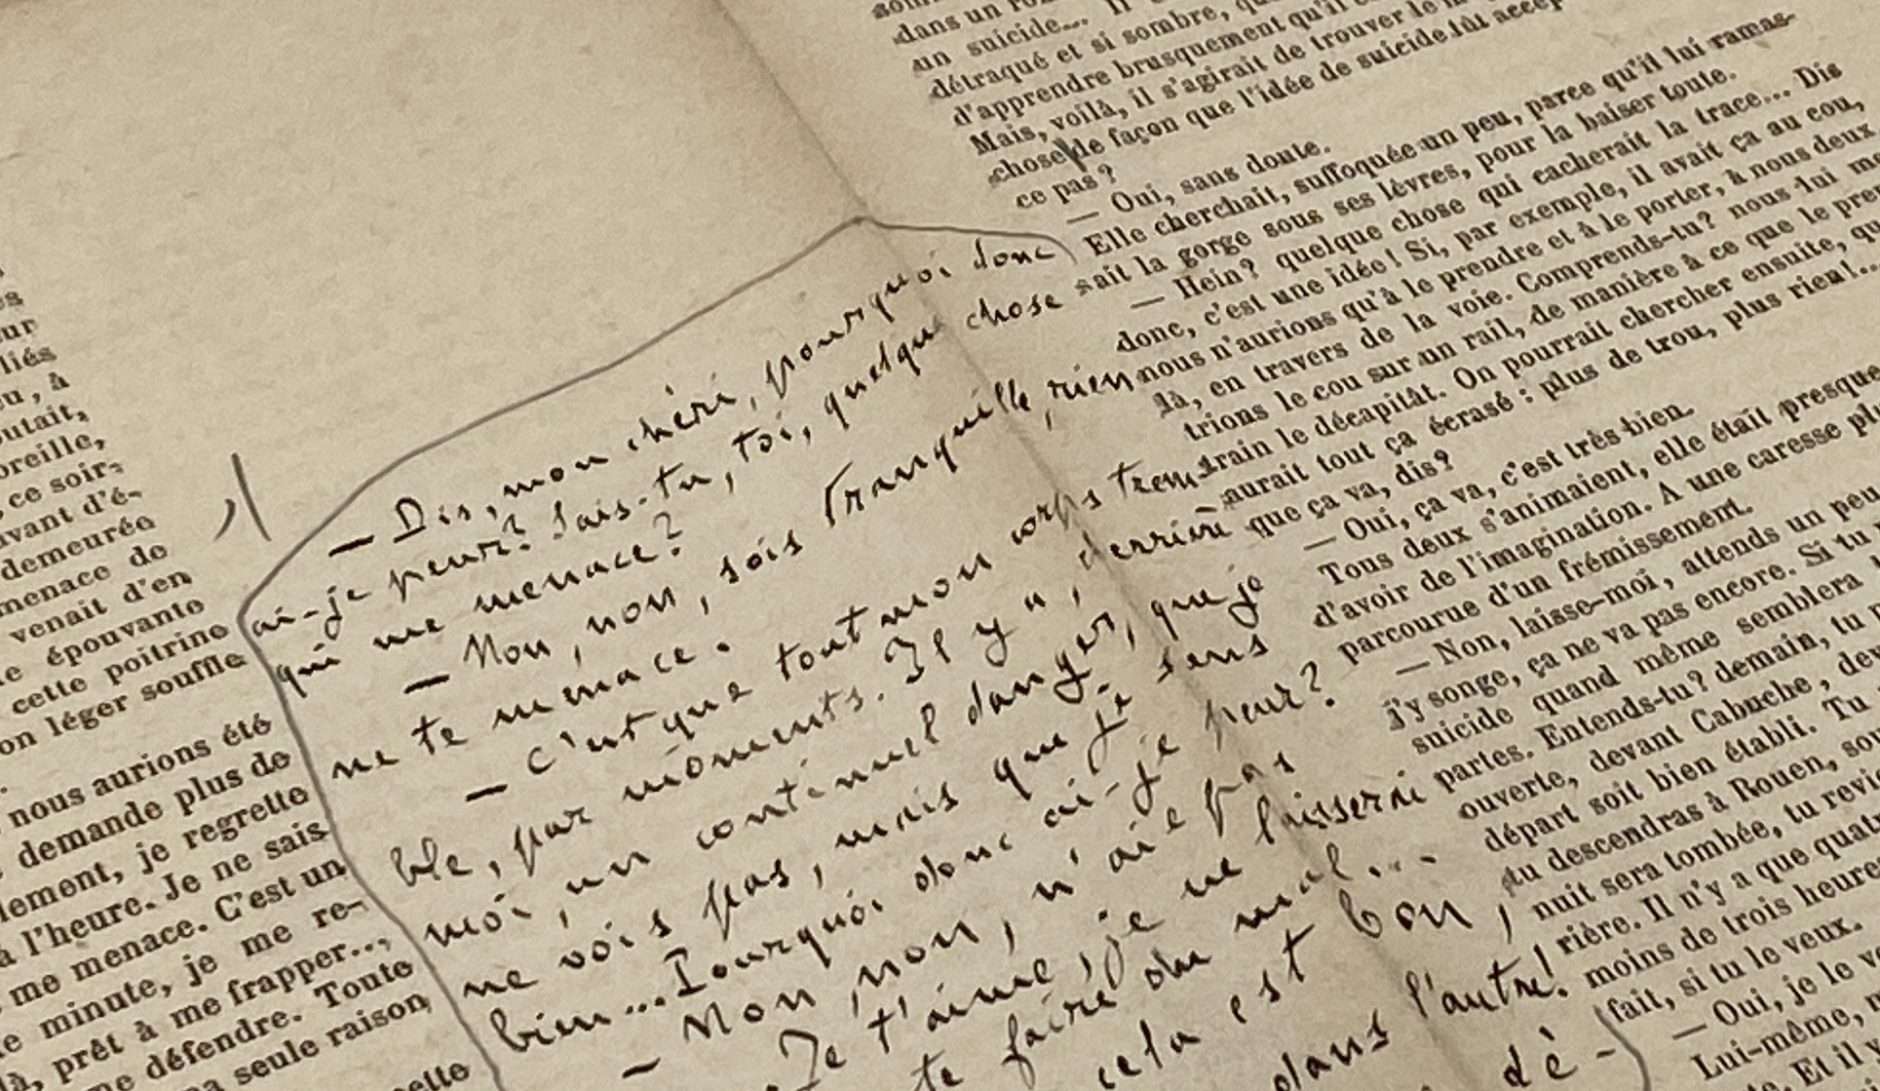 ur
liés
eu, à
outait,
oreille,
ce soir-
avant d'é-
demeurée
menace de
venait d'en
épouvante
cette poitrine
on léger souffle
nous aurions été
demande plus de
lement, je regrette
à l'heure. Je ne sais
me menace. C'est un
minute, je me re-
là, prêt à me frapper...,
me défendre. Toute
seule raison
— Dis, mon chéri, pourquoi donc
ai-je peur? Sais-tu, toi, quelque chose
qui me menace?
— Non, non, sois tranquille, rien
ne te menace.
— C'est que tout mon corps trem-
ble, par moments. Il y a, derrière
moi, un continuel danger, que je
ne vois pas, mais que je sens
bien... Pourquoi donc ai-je peur?
— Non, non, n'aie pas
Je t'aime, je ne laisserai
te faire du mal...
cela est bon,
dans l'autre!
dé-
dans un
un suicide... Il
détraqué et si sombre,
d'apprendre brusquement qu'il
Mais, voilà, il s'agirait de trouver le
chose de façon que l'idée de suicide fût accep
ce pas?
— Oui, sans doute.
Elle cherchait, suffoquée un peu, parce qu'il lui ramas-
sait la gorge sous ses lèvres, pour la baiser toute.
— Hein? quelque chose qui cacherait la trace... Dis
donc, c'est une idée! Si, par exemple, il avait ça au cou,
nous n'aurions qu'à le prendre et à le porter, à nous deux
là, en travers de la voie. Comprends-tu? nous lui me
trions le cou sur un rail, de manière à ce que le pre
train le décapitât. On pourrait chercher ensuite, qu
aurait tout ça écrasé: plus de trou, plus rien!...
que ça va, dis?
— Oui, ça va, c'est très bien.
Tous deux s'animaient, elle était presque
d'avoir de l'imagination. A une caresse pl
parcourue d'un frémissement.
— Non, laisse-moi, attends un peu
j'y songe, ça ne va pas encore. Si tu
suicide quand même semblera
partes. Entends-tu? demain, tu
ouverte, devant Cabuche, dev
départ soit bien établi. Tu
tu descendras à Rouen, sou
nuit sera tombée, tu revi
rière. Il n'y a que quatr
moins de trois heure
fait, si tu le veux.
— Oui, je le v
Lui-même,
Et il y